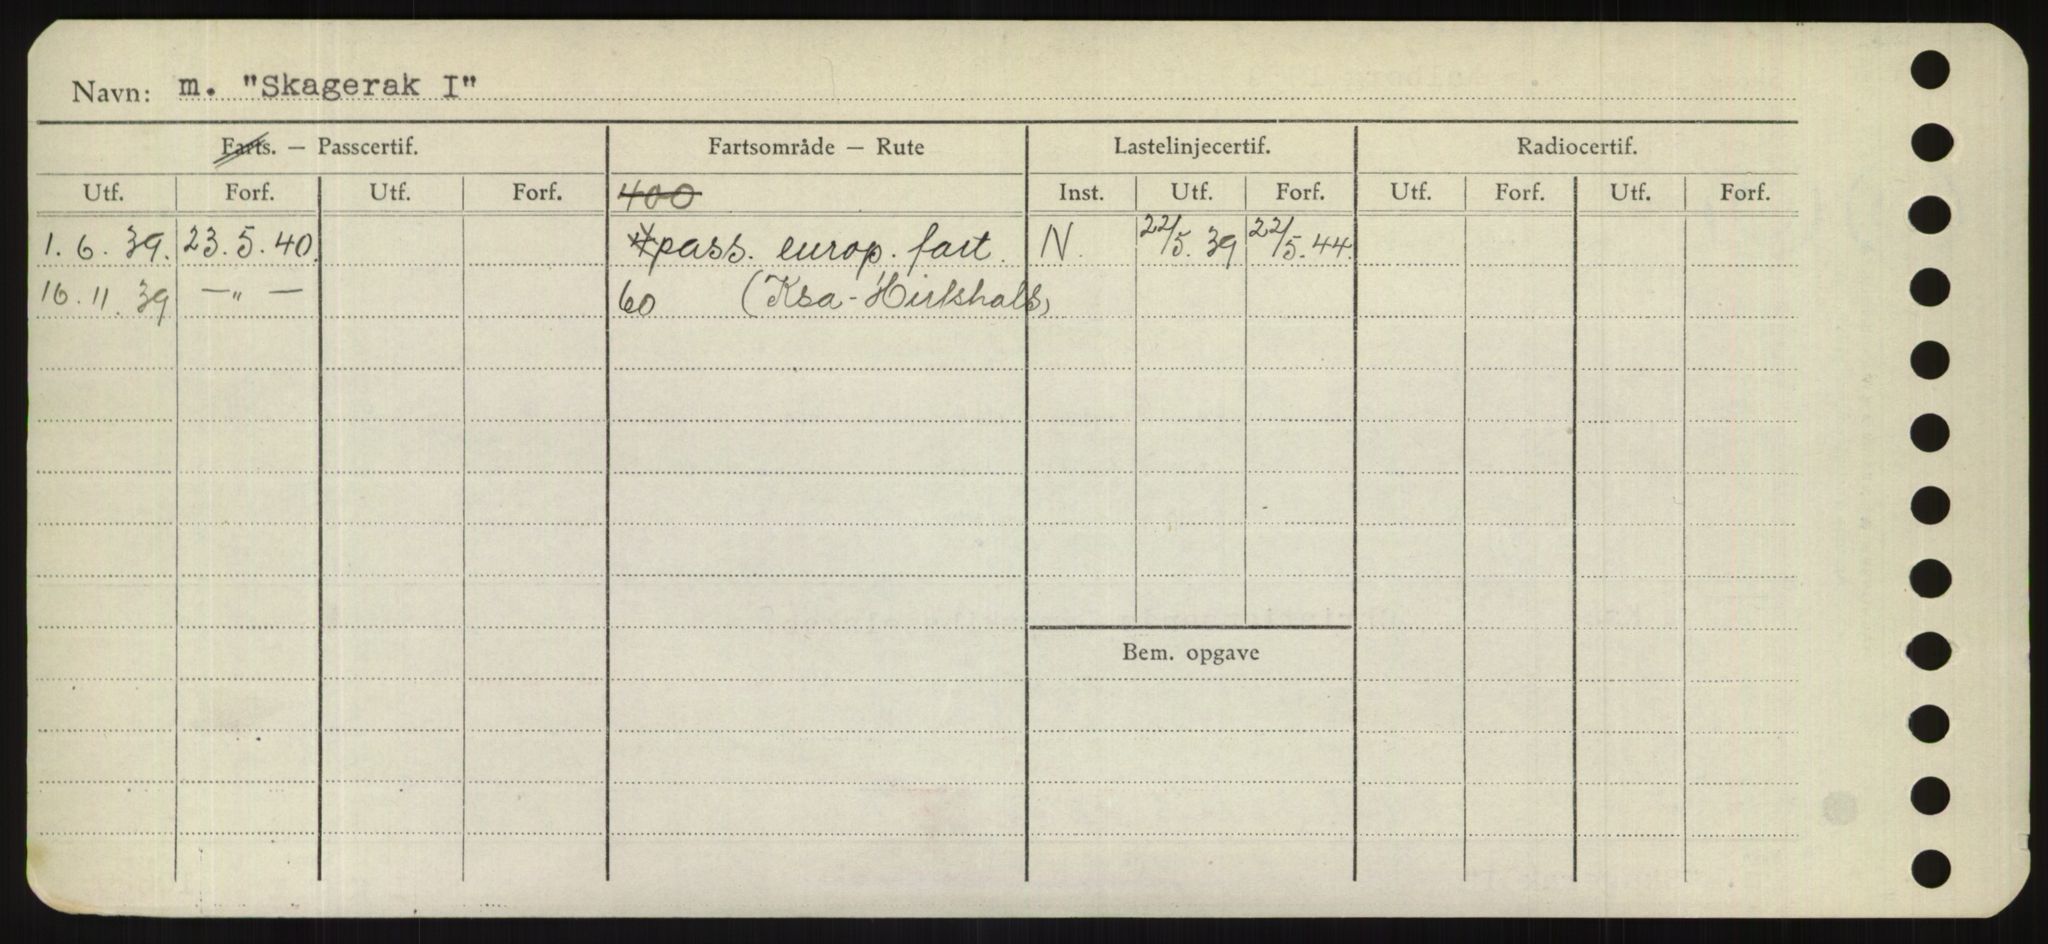 Navn: m. "Skagerak I"
Farts. — Passcertif. Fartsområde — Rute Lastelinjecertif. Radiocertif.
Utf. Forf. Utf. Forf. 400 Inst. Utf. Forf. Utf. Forf. Utf. Forf.
1.6.39. 23.5.40. pass. europ. fart. N. 22/5.39 22/5.44.
16.11.39 — " — 60 (Ksa-Hirtshals)
Bem. opgave